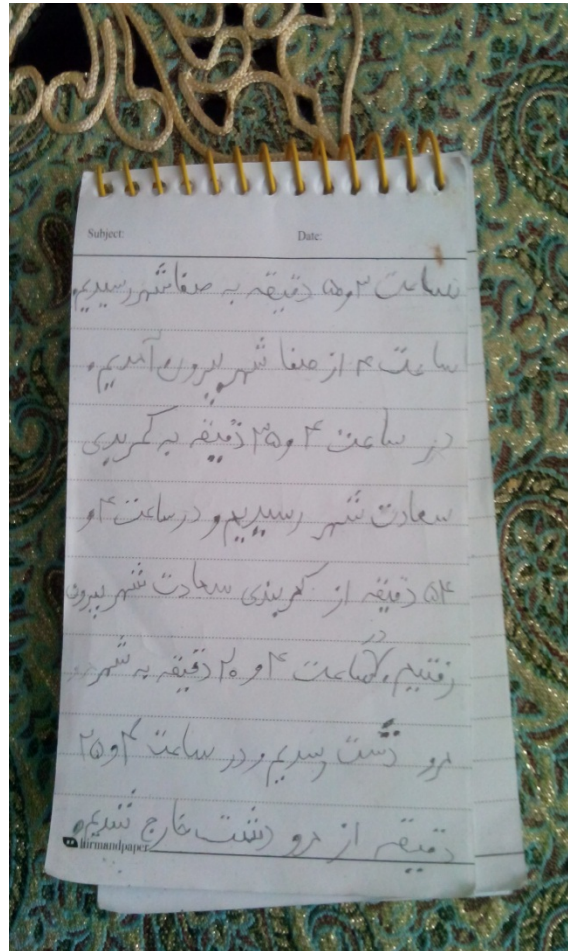 Subject:
Date:
ساعت ۳ و ۵۱ دقیقه به صفاشهر رسیدیم.
ساعت ۴ از صفا شهر بیرون آمدیم.
در ساعت ۴ و ۳۵ دقیقه به کمربندی
سعادت شهر رسیدیم و در ساعت ۴ و
۵۴ دقیقه از کمربندی سعادت شهر بیرون
رفتیم. در ساعت ۴ و ۲۰ دقیقه به شهر
مرو دشت رسیدیم و در ساعت ۴ و ۲۵
دقیقه از مرو دشت خارج شدیم.
firmandpaper